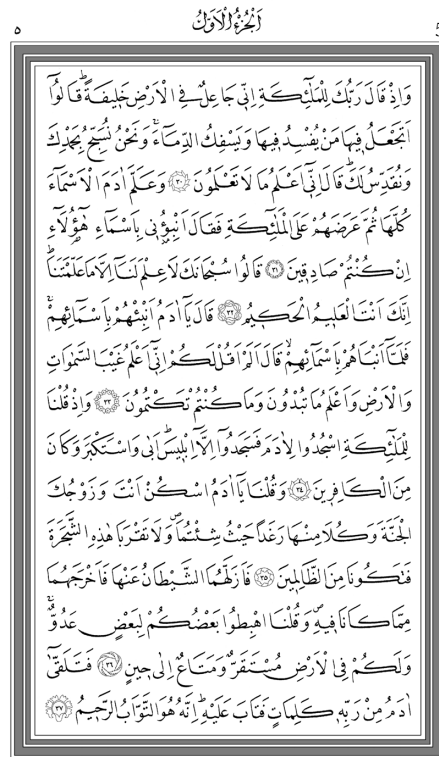 اَلْجُزْءُ الْاَوَّلُ
٥
وَاِذْ قَالَ رَبُّكَ لِلْمَلٰٓئِكَةِ اِنّ۪ي جَاعِلٌ فِي الْاَرْضِ خَل۪يفَةًۜ قَالُٓوا
اَتَجْعَلُ ف۪يهَا مَنْ يُفْسِدُ ف۪يهَا وَيَسْفِكُ الدِّمَٓاءَۚ وَنَحْنُ نُسَبِّحُ بِحَمْدِكَ
وَنُقَدِّسُ لَكَۜ قَالَ اِنّ۪ٓي اَعْلَمُ مَا لَا تَعْلَمُونَ ﴿٣٠﴾ وَعَلَّمَ اٰدَمَ الْاَسْمَٓاءَ
كُلَّهَا ثُمَّ عَرَضَهُمْ عَلَى الْمَلٰٓئِكَةِ فَقَالَ اَنْبِؤُ۫ن۪ي بِاَسْمَٓاءِ هٰٓؤُ۬لَٓاءِ
اِنْ كُنْتُمْ صَادِق۪ينَ ﴿٣١﴾ قَالُوا سُبْحَانَكَ لَا عِلْمَ لَنَٓا اِلَّا مَا عَلَّمْتَنَاۜ
اِنَّكَ اَنْتَ الْعَل۪يمُ الْحَك۪يمُ ﴿٣٢﴾ قَالَ يَٓا اٰدَمُ اَنْبِئْهُمْ بِاَسْمَٓائِهِمْۚ
فَلَمَّٓا اَنْبَاَهُمْ بِاَسْمَٓائِهِمْۙ قَالَ اَلَمْ اَقُلْ لَكُمْ اِنّ۪ٓي اَعْلَمُ غَيْبَ السَّمٰوَاتِ
وَالْاَرْضِ وَاَعْلَمُ مَا تُبْدُونَ وَمَا كُنْتُمْ تَكْتُمُونَ ﴿٣٣﴾ وَاِذْ قُلْنَا
لِلْمَلٰٓئِكَةِ اسْجُدُوا لِاٰدَمَ فَسَجَدُٓوا اِلَّٓا اِبْل۪يسَۜ اَبٰى وَاسْتَكْبَرَ وَكَانَ
مِنَ الْكَافِر۪ينَ ﴿٣٤﴾ وَقُلْنَا يَٓا اٰدَمُ اسْكُنْ اَنْتَ وَزَوْجُكَ
الْجَنَّةَ وَكُلَا مِنْهَا رَغَداً حَيْثُ شِئْتُمَاۖ وَلَا تَقْرَبَا هٰذِهِ الشَّجَرَةَ
فَتَكُونَا مِنَ الظَّالِم۪ينَ ﴿٣٥﴾ فَاَزَلَّهُمَا الشَّيْطَانُ عَنْهَا فَاَخْرَجَهُمَا
مِمَّا كَانَا ف۪يهِۖ وَقُلْنَا اهْبِطُوا بَعْضُكُمْ لِبَعْضٍ عَدُوٌّۚ
وَلَكُمْ فِي الْاَرْضِ مُسْتَقَرٌّ وَمَتَاعٌ اِلٰى ح۪ينٍ ﴿٣٦﴾ فَتَلَقّٰٓى
اٰدَمُ مِنْ رَبِّه۪ كَلِمَاتٍ فَتَابَ عَلَيْهِۜ اِنَّهُ هُوَ التَّوَّابُ الرَّح۪يمُ ﴿٣٧﴾